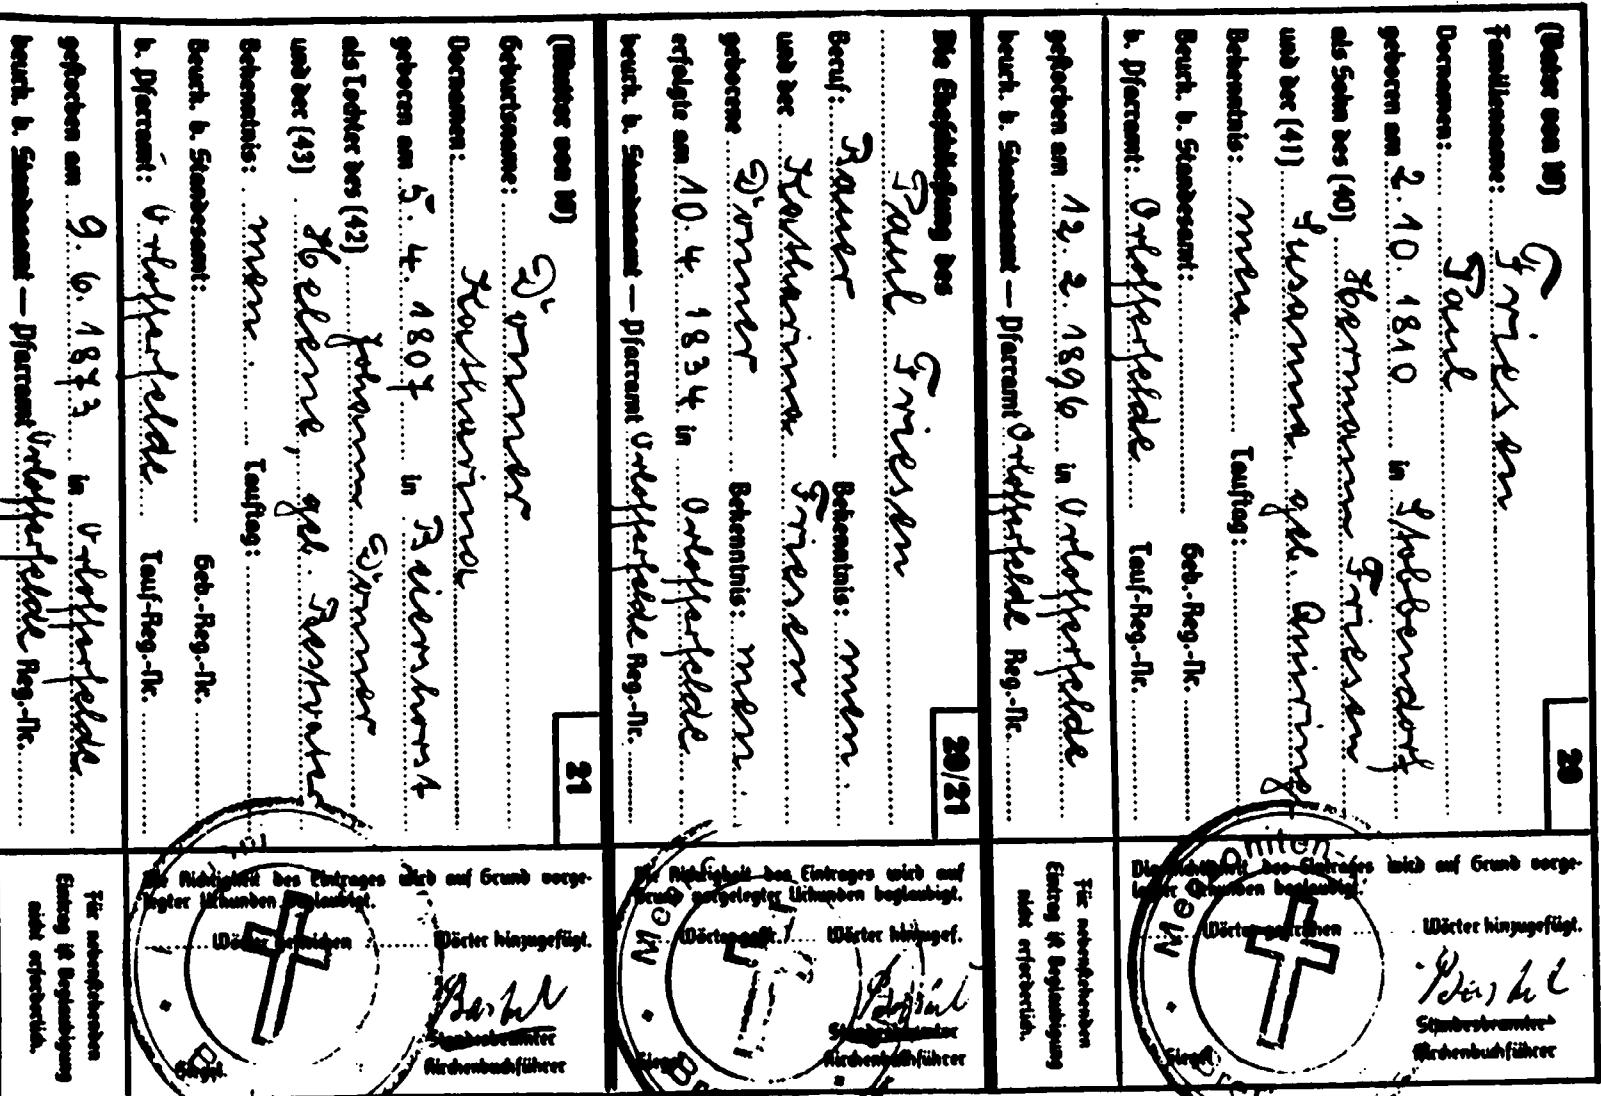 (Vater von 10)
20
Familienname: Friesen
Vornamen: Paul
geboren am 2. 10. 1810 in Stobbendorf
als Sohn des (40) Hermann Friesen
und der (41) Susanna geb. Quiring
Bekenntnis: men. Tauftag:
Beurk. b. Standesamt: Geb.-Reg.-Nr.
b. Pfarramt: Orlofferfelde Tauf-Reg.-Nr.
gestorben am 12. 2. 1896 in Orlofferfelde
beurk. b. Standesamt — Pfarramt Orlofferfelde Reg.-Nr.
Die Richtigkeit des Eintrages wird auf Grund vorge-
legter Urkunden beglaubigt.
Wörter gestrichen Wörter hinzugefügt.
Standesbeamter
Siegel. Kirchenbuchführer
Für nebenstehenden
Eintrag ist Beglaubigung
nicht erforderlich.
Die Eheschließung des
20/21
Paul Friesen
Beruf: Bauer Bekenntnis: men.
und der Katharina Friesen
geborene Dörnner Bekenntnis: men.
erfolgte am 10. 4. 1834 in Orlofferfelde
beurk. b. Standesamt — Pfarramt Orlofferfelde Reg.-Nr.
Die Richtigkeit des Eintrages wird auf
Grund vorgelegter Urkunden beglaubigt.
Wörter gestr. Wörter hinzugef.
Standesbeamter
Siegel. Kirchenbuchführer
(Mutter von 10)
21
Geburtsname: Dörnner
Vornamen: Katharina
geboren am 5. 4. 1807 in Beiershorst
als Tochter des (42) Johann Dörnner
und der (43) Helene, geb.
Bekenntnis: men. Tauftag:
Beurk. b. Standesamt: Geb.-Reg.-Nr.
b. Pfarramt: Orlofferfelde Tauf-Reg.-Nr.
gestorben am 9. 6. 1873 in Orlofferfelde
beurk. b. Standesamt — Pfarramt Orlofferfelde Reg.-Nr.
Die Richtigkeit des Eintrages wird auf Grund vorge-
legter Urkunden beglaubigt.
Wörter gestrichen Wörter hinzugefügt.
Standesbeamter
Siegel. Kirchenbuchführer
Für nebenstehenden
Eintrag ist Beglaubigung
nicht erforderlich.